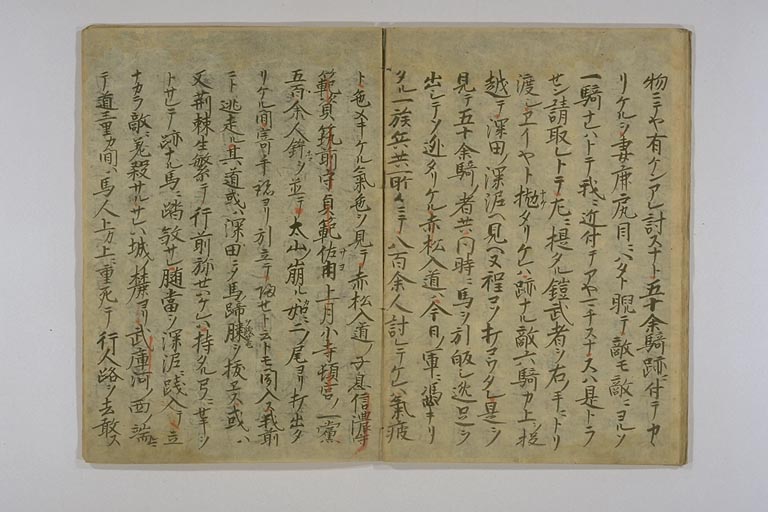 物ニテヤ有ケンアレ討スナトテ五十余騎跡ニ付テカヽ
リケルヲ妻鹿尻目ニハタト睨テ敵モ敵ニヨルソ
一騎ナレハトテ我ニ近付テアヤマチスナスハ是トラ
サン請取レトテ左ニ提タル鎧武者ヲ右ノ手ニトリ
渡シエイヤト抛タリケレハ跡ナル敵六騎カ上ヲ投
越テ深田ノ深泥ヘ見ヘヌ程コソ打コウタレ是ヲ
見テ五十余騎ノ者共同時ニ馬ヲ引皈シ迯足ヲ
出シテソ迯タリケル赤松入道ハ今日ノ軍ニ憑キリ
タル一族兵共所々ニテ八百余人討レテケレハ気疲
ト色メキケル気色ヲ見テ赤松入道ノ子息信濃守
範資筑前守貞範佐用上月小寺頓宮ノ一党
五百余人鋒ヲ並テ大山ノ崩ル如ニ二ノ尾ヨリ打出タ
リケル間寄手跡ヨリ引立テ返セト云トモ不聞入我前
ニト逃走ル其道或ハ深田ニテ馬蹄膝ヲ抜エス或ハ
又荊棘生繁テ行前弥セハケレハ持タル弓ニサハラシ
トサレテ跡ナル馬ニ踏敷サレ随当ヲ深泥ニ践入テ立
ナカラ敵ニ冤殺サルサレハ城ノ麓ヨリ武庫河ノ西端ニ
テ道三里カ間ハ馬人上カ上ニ重死テ行人路ヲ去敢ス